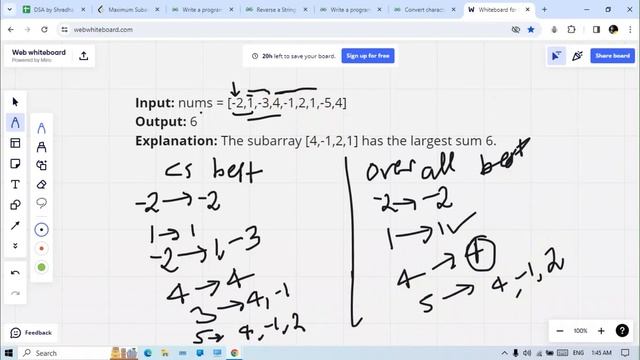 DSA by Shradha
Maximum Subar
Write a program
Reverse a String
Write a progra
Convert charac
Whiteboard for
webwhiteboard.com
Web whiteboard
Powered by Miro
20h left to save your board.
Sign up for free
Share board
Input: nums = [-2,1,-3,4,-1,2,1,-5,4]
Output: 6
Explanation: The subarray [4,-1,2,1] has the largest sum 6.
cs best
-2 → -2
1 → 1
-2 → 1, -3
4 → 4
3 → 4, -1
5 → 4, -1, 2
overall best
-2 → -2
1 → 1
4 → 4
5 → 4, -1, 2
Feedback
100%
ENG
1:45 AM